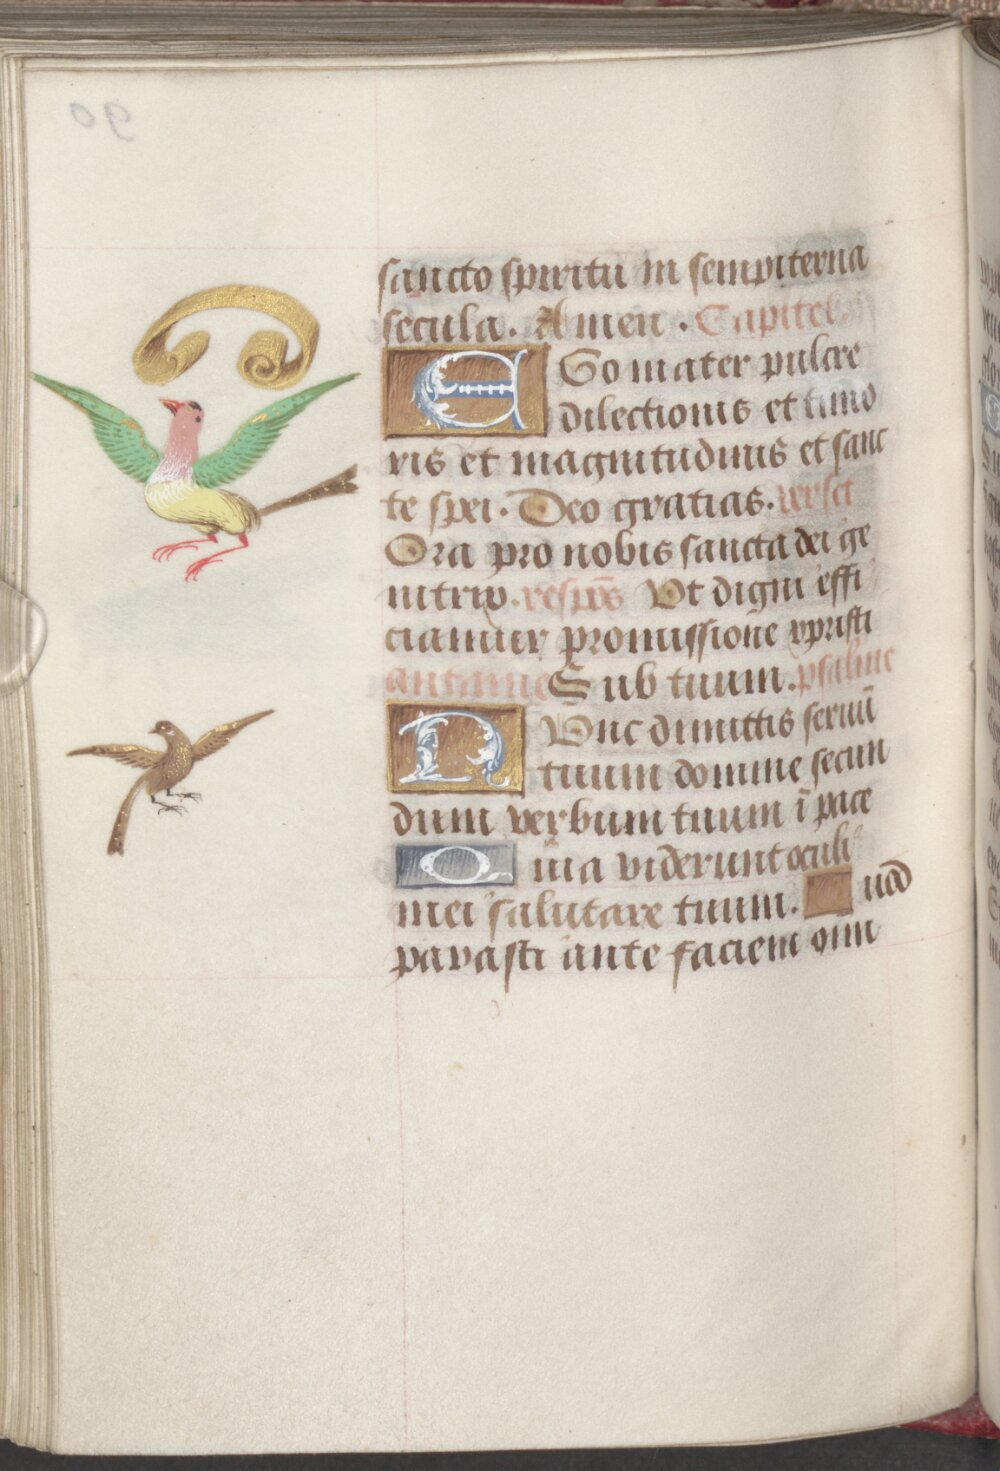 sancto spiritu in sempiterna
secula. Amen. Capitel.
Ego mater pulcre
dilectionis et timo
ris et magnitudinis et sanc
te spei. Deo gratias. verset
Ora pro nobis sancta dei ge
nitrix. respōs Vt digni effi
ciamur promissione xpristi
antaine Sub tuum. psalme
NVnc dimittis seruū
tuum domine secun
dum verbum tuum ī pace
Quia viderunt oculi
mei salutare tuum. uod
parasti ante faciem omī